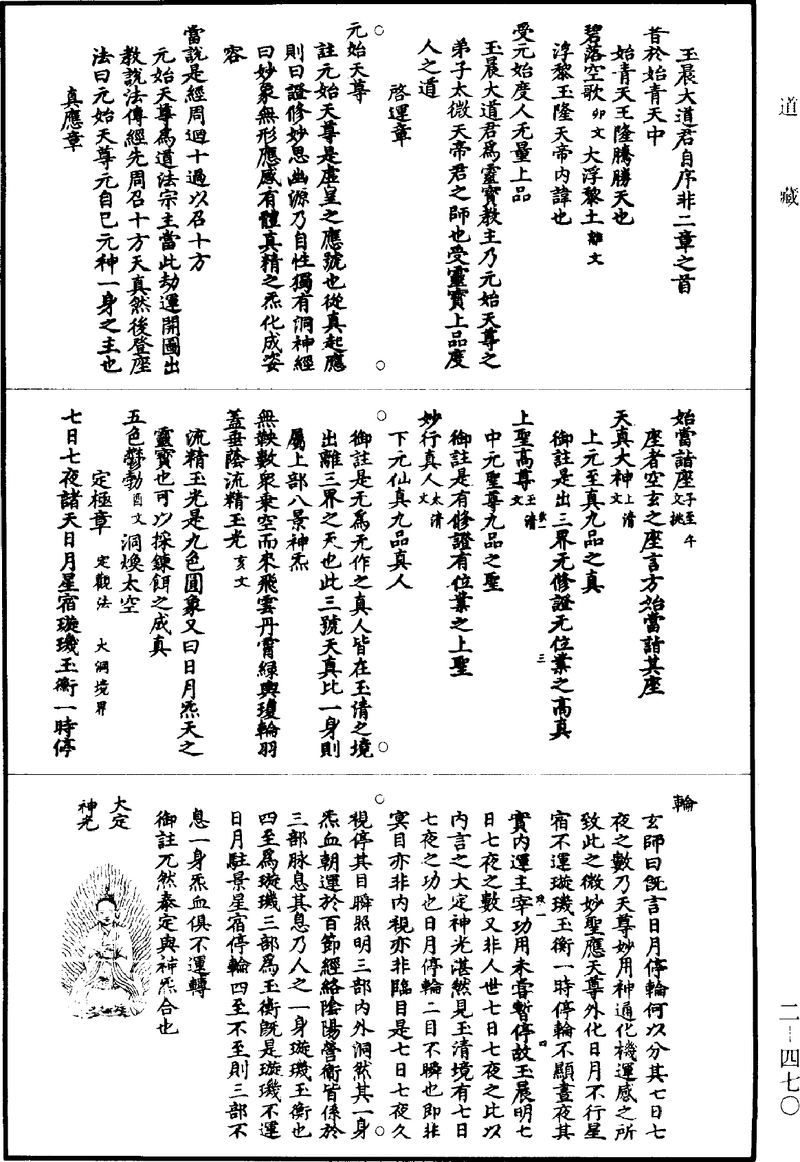 道藏
玉晨大道君自序非二章之首
昔於始青天中
始青天王隆騰勝天也
碧落空歌卯文大浮黎土離文
浮黎玉隆天帝内諱也
受元始度人无量上品
玉晨大道君爲靈寶教主乃元始天尊之
弟子太微天帝君之師也受靈寶上品度
人之道
啓運章
元始天尊
註元始天尊是虛皇之應號也從真起應
則曰證修妙思幽源乃自性獨有洞神經
曰妙象無形應感有體真精之炁化成姿
容
當說是經周迴十過以召十方
元始天尊爲道法宗主當此劫運開圖出
教說法傳經先周召十方天真然後登座
法曰元始天尊元自己元神一身之主也
真應章
始當詣座子至午文挑
座者空玄之座言方始當詣其座
天真大神上清文
上元至真九品之真
御註是出三界无修證无位業之高真
上聖高尊玉清文
中元聖尊九品之聖
御註是有修證有位業之上聖
妙行真人太清文
下元仙真九品真人
御註是无爲无作之真人皆在玉清之境
出離三界之天也此三號天真比一身則
屬上部八景神炁
無鞅數衆乗空而來飛雲丹霄緑輿瓊輪羽
蓋垂蔭流精玉光亥文
流精玉光是九色圓象又曰日月炁天之
靈寶也可以採鍊餌之成真
五色鬱勃酉文洞煥太空
定極章 定觀法 大洞境界
七日七夜諸天日月星宿璇璣玉衡一時停
輪
玄師曰旣言日月停輪何以分其七日七
夜之數乃天尊妙用神通化機運感之所
致此之微妙聖應天尊外化日月不行星
宿不運璇璣玉衡一時停輪不顯晝夜其
實内運主宰功用未嘗暫停故玉晨明七
日七夜之數又非人世七日七夜之比以
内言之大定神光湛然見玉清境有七日
七夜之功也日月停輪二目不瞬也即非
冥目亦非内視亦非臨目是七日七夜久
視停其目瞬照明三部内外洞然其一身
炁血朝運於百節經絡陰陽營衛皆係於
三部脉息其息乃人之一身璇璣玉衡也
四至爲璇璣三部爲玉衡旣是璇璣不運
日月駐景星宿停輪四至不至則三部不
息一身炁血俱不運轉
御註兀然泰定與神炁合也
大定
神光
二—四七〇